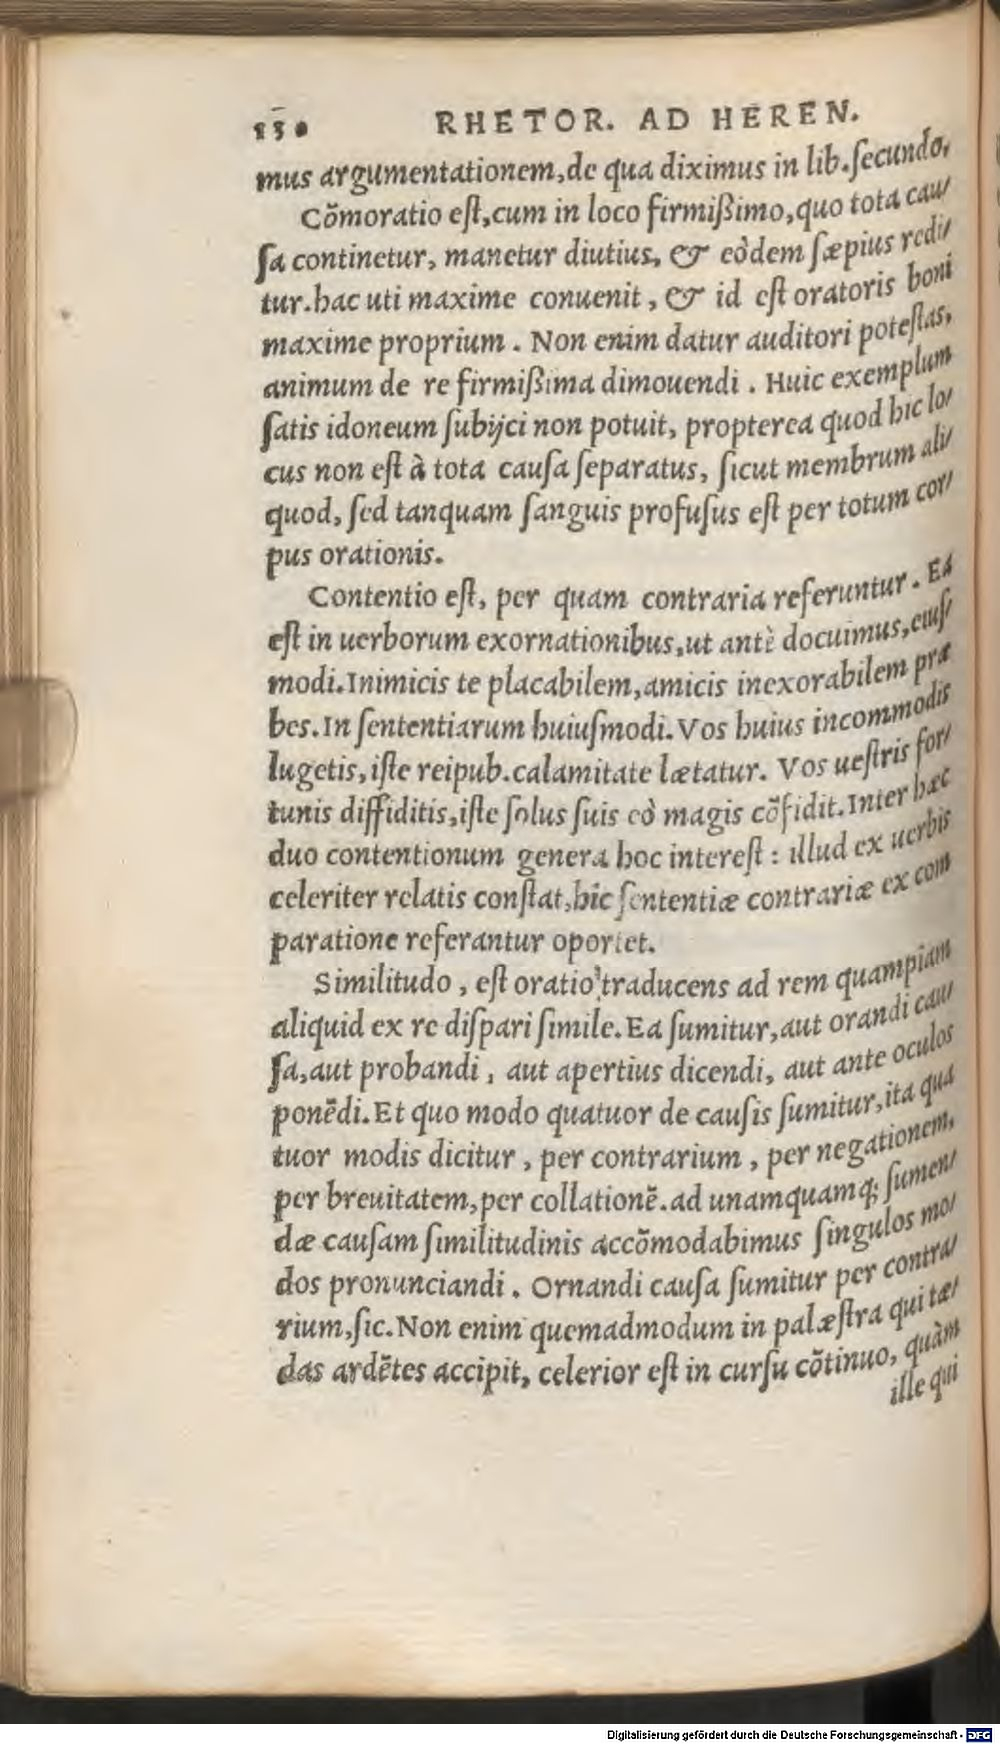 130 RHETOR. AD HEREN.
mus argumentationem,de qua diximus in lib.ſecundo.
Cõmoratio eſt,cum in loco firmißimo,quo tota cau⸗
ſa continetur, manetur diutius, & eòdem ſæpius redi⸗
tur.hac uti maxime conuenit, & id eſt oratoris boni
maxime proprium. Non enim datur auditori poteſtas,
animum de re firmißima dimouendi. Huic exemplum
ſatis idoneum ſubijci non potuit, propterea quod hic lo⸗
cus non eſt à tota cauſa ſeparatus, ſicut membrum ali⸗
quod, ſed tanquam ſanguis profuſus eſt per totum cor⸗
pus orationis.
Contentio eſt, per quam contraria referuntur. Ea
eſt in uerborum exornationibus,ut antè docuimus,eiuſ⸗
modi.Inimicis te placabilem,amicis inexorabilem præ
bes.In ſententiarum huiuſmodi.Vos huius incommodis
lugetis,iſte reipub.calamitate lætatur. Vos ueſtris for⸗
tunis diffiditis,iſte ſolus ſuis eò magis cõfidit.Inter hæc
duo contentionum genera hoc intereſt: illud ex uerbis
celeriter relatis conſtat,hic ſententiæ contrariæ ex com
paratione referantur oportet.
Similitudo, eſt oratio traducens ad rem quampiam
aliquid ex re diſpari ſimile.Ea ſumitur,aut orandi cau⸗
ſa,aut probandi, aut apertius dicendi, aut ante oculos
ponēdi.Et quo modo quatuor de cauſis ſumitur,ita qua
tuor modis dicitur, per contrarium, per negationem,
per breuitatem,per collationē.ad unamquamq; ſumen⸗
dæ cauſam ſimilitudinis accõmodabimus ſingulos mo⸗
dos pronunciandi. Ornandi cauſa ſumitur per contra⸗
rium,ſic.Non enim quemadmodum in palæſtra qui tæ⸗
das ardētes accipit, celerior eſt in curſu cõtinuo, quàm
ille qui
Digitalisierung gefördert durch die Deutsche Forschungsgemeinschaft - DFG